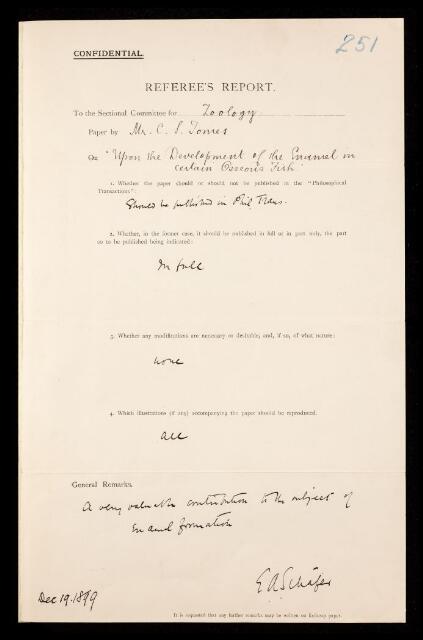 251
CONFIDENTIAL.
REFEREE'S REPORT.
To the Sectional Committee for Zoology
Paper by Mr. C. S. Tomes
On "Upon the Development of the Enamel in
certain Osseous Fish"
1. Whether the paper should or should not be published in the "Philosophical
Transactions":
Should be published in Phil Trans.
2. Whether, in the former case, it should be published in full or in part only, the part
so to be published being indicated:
In full
3. Whether any modifications are necessary or desirable, and, if so, of what nature:
none
4. Which illustrations (if any) accompanying the paper should be reproduced.
all
General Remarks.
A very valuable contribution to the subject of
Enamel formation
E A Schäfer
Dec 19. 1899
It is requested that any further remarks may be written on foolscap paper.